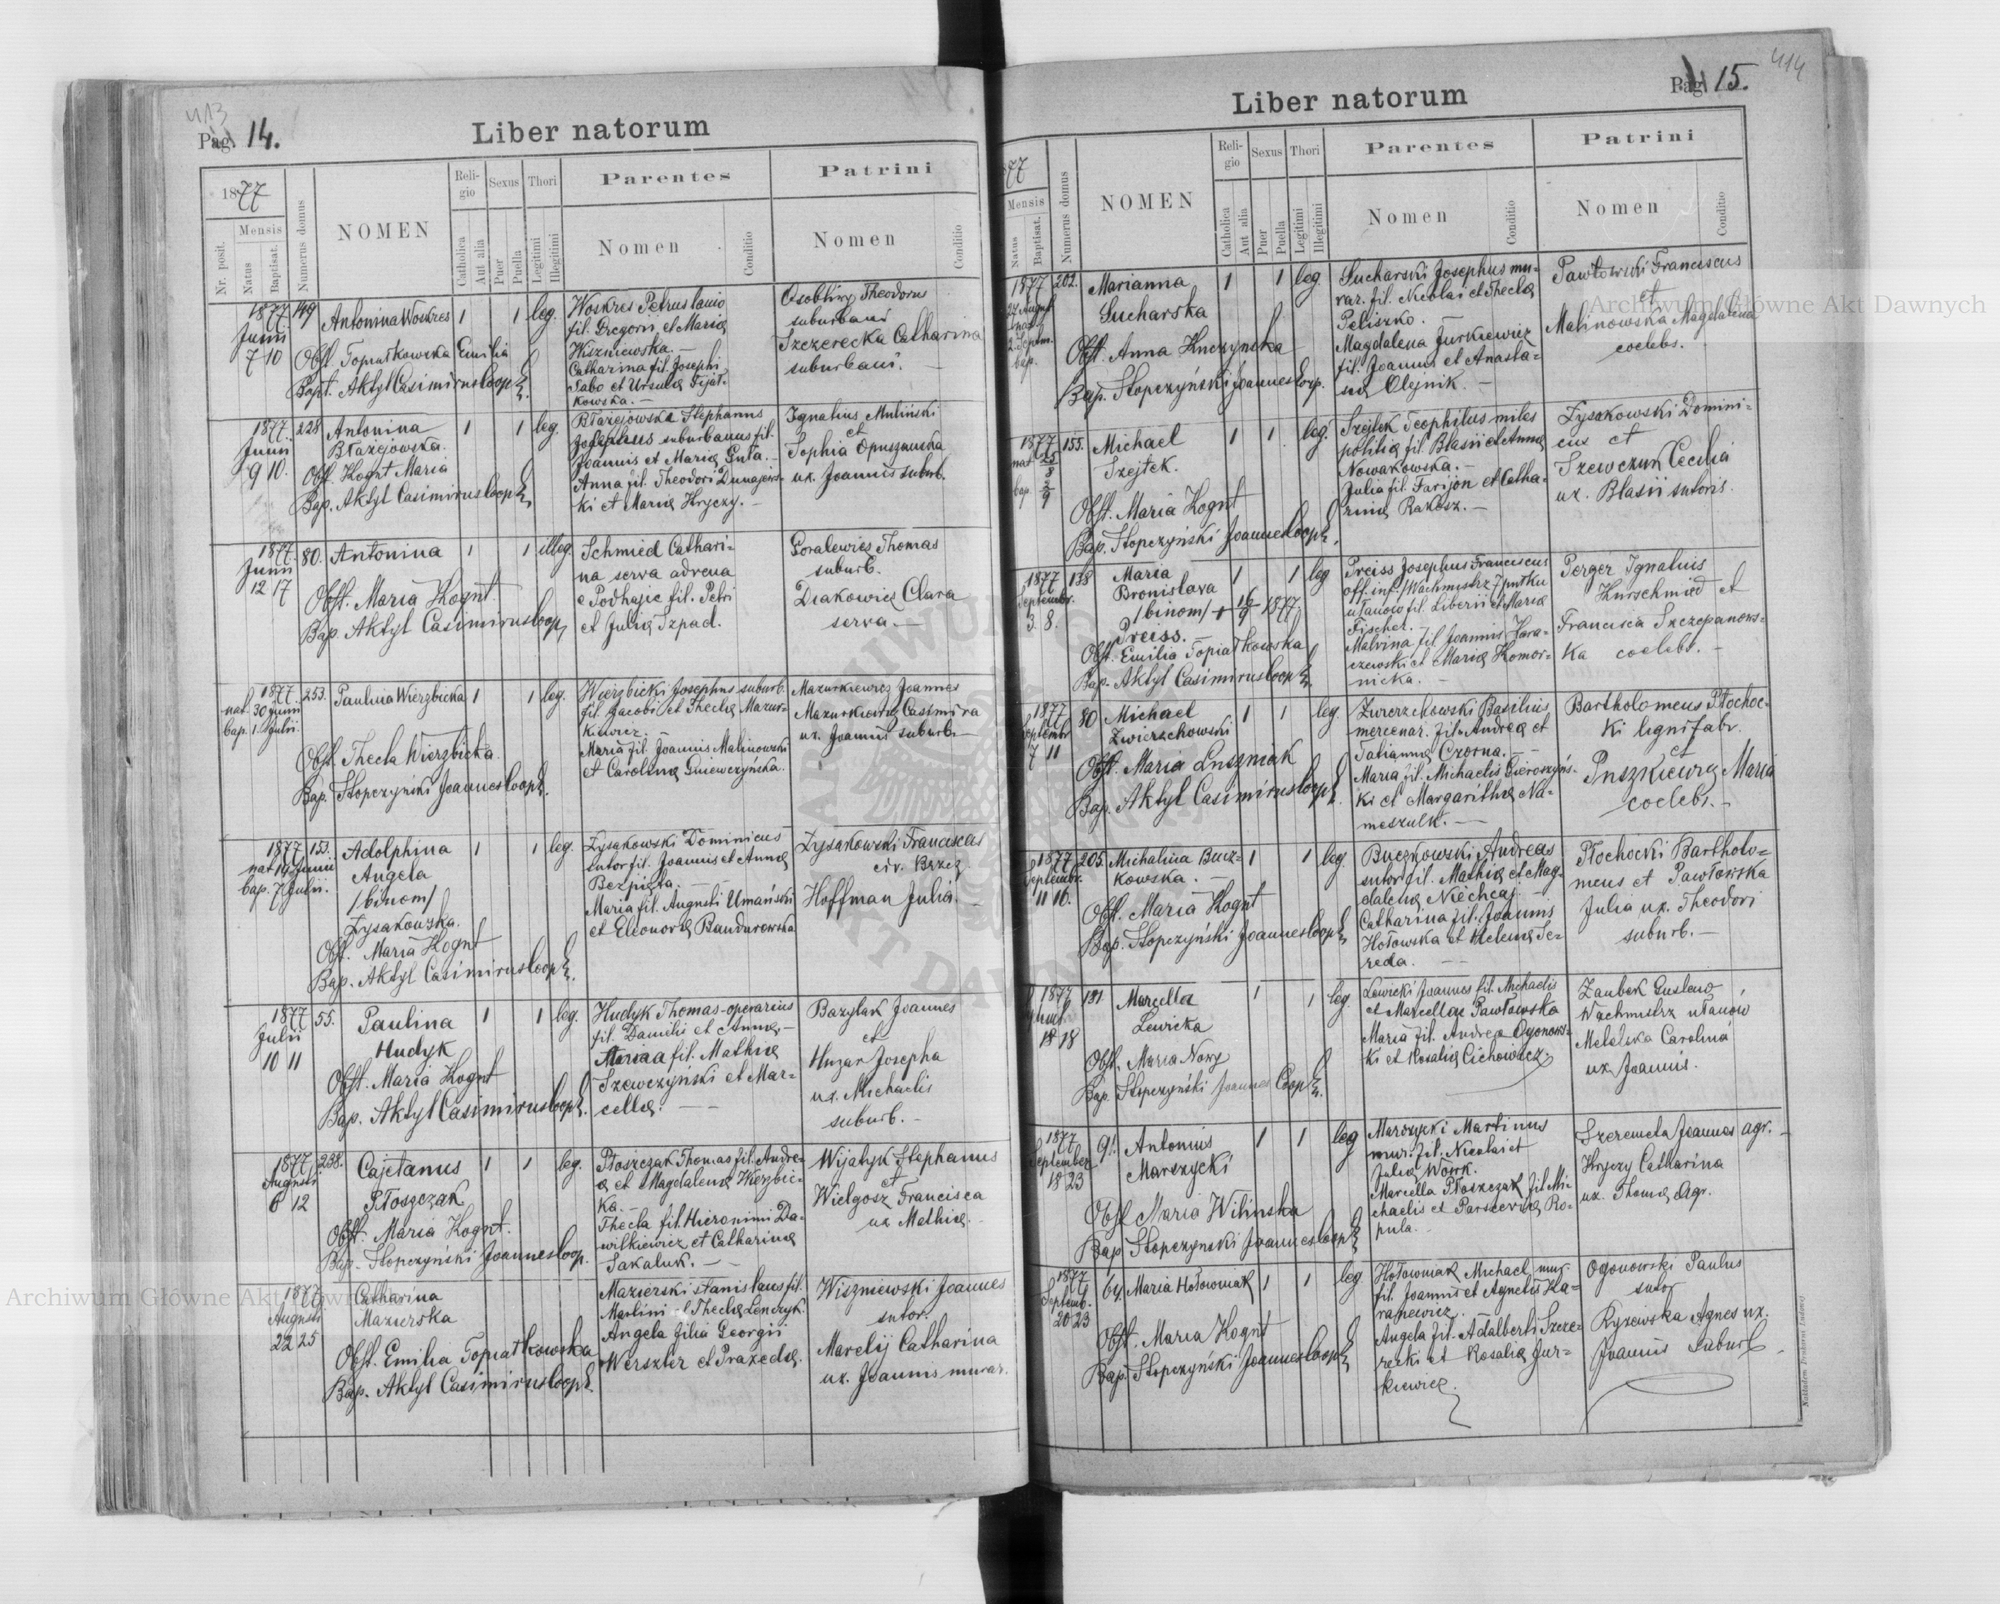 413
Pag. 14.
Liber natorum
1877
Nr. posit.
Mensis
Natus
Baptisat.
Numerus domus
NOMEN
Religio
Catholica
Aut alia
Sexus
Puer
Puella
Thori
Legitimi
Illegitimi
Parentes
Nomen
Conditio
Patrini
Nomen
Conditio
1877 149
Junii
7 10
Antonina Woskres 1 1 leg.
Obst. Topiatkowska Emilia
Bapt. Aktyl Casimirus Coop.
Woskres Petrus lanio
fil. Gregorii et Maria
Wiszniewska. —
Catharina fil. Josephi
Sabo et Ursula Fijał-
kowska. —
Theodorus
suburbani
Szczerecka Catharina
suburbani. —
1877. 228
Junii
9 10.
Antonina 1 1 leg.
Błażejowska.
Obst. Kognt Maria
Bap. Aktyl Casimirus Coop.
Błażejowska Stephanus
Josephus suburbanus fil.
Joannis et Maria Guta. —
Anna fil. Theodori Dunajews-
ki et Maria Hryczy. —
Ignatius Muliński
et
Sophia
ux. Joannis suburb.
1877. 80.
Junii
12 17
Antonina 1 1 illeg.
Obst. Maria Kognt.
Bap. Aktyl Casimirus Coop.
Schmied Cathari-
na serva advena
e Podhajce fil. Petri
et Julia Szpad.
Goralewicz Thomas
suburb.
Diakowicz Clara
serva —
1877. 253.
nat. 30 Junii
bap. 1 Julii.
Paulina Wierzbicka 1 1 leg.
Obst. Thecla Wierzbicka.
Bap. Stopczyński Joannes Coop.
Wierzbicki Josephus suburb.
fil. Jacobi et Thecla Mazur-
kiewicz. —
Maria fil. Joannis Malinowski
et Carolina Gniewczyńska.
Mazurkiewicz Joannes
Mazurkiewicz Casimira
ux. Joannis suburb. —
1877 153.
nat. 19 Junii
bap. 7 Julii.
Adolphina 1 1 leg.
Angela
/binom/
Zysakowska.
Obst. Maria Kognt
Bap. Aktyl Casimirus Coop.
Zysakowski Dominicus
sutor fil. Joannis et Anna
Maria fil. Augusti Umański
et Eleonora Bandurowska
Zysakowski Franciscus
civ. Brzez.
Hoffman Julia. —
1877 55.
Julii
10 11
Paulina 1 1 leg.
Hudyk
Obst. Maria Kognt
Bap. Aktyl Casimirus Coop.
Hudyk Thomas - operarius
fil. Danilis et Anna —
Maria fil. Mathia
Szewczyński et Mar-
cella. —
Bazylak Joannes
et
Huzar Josepha
ux. Michaelis
suburb. —
1877 238.
Augusti
6 12
Cajetanus 1 1 leg.
Płoszczak
Obst. Maria Kognt.
Bap. Stopczyński Joannes Coop.
Płoszczak Thomas fil. Andre-
a et Magdalena Wierzbic-
ka. —
Thecla fil. Hieronimi Da-
wilkiewicz et Catharina
Sakaluk. —
Wijatyk Stephanus
et
Wielgosz Francisca
ux Mathia. —
1877
Augusti
22 25
Catharina
Mazierska
Obst. Emilia Topiatkowska
Bap. Aktyl Casimirus Coop.
Mazierski Stanislaus fil.
Martini et Thecla Lenczyk.
Angela filia Georgii
Werszler et Praxeda.
Wiszniewski Joannes
sutor.
Marelij Catharina
ux. Joannis murar.
414
Pag. 15.
Liber natorum
1877
Mensis
Natus
Baptisat.
Numerus domus
NOMEN
Religio
Catholica
Aut alia
Sexus
Puer
Puella
Thori
Legitimi
Illegitimi
Parentes
Nomen
Conditio
Patrini
Nomen
Conditio
1877 202.
27 August
nat.
2 Septm.
bap.
Marianna 1 1 leg
Sucharska
Obst. Anna Huczynska
Bap. Stopczyński Joannes Coop.
Sucharski Josephus mu-
rar. fil. Nicolai et Thecla
Peliszko. —
Magdalena Jurkiewicz
fil. Joannis et Anasta-
sia Olejnik. —
Pawłowski Franciscus
et
Malinowska Magdalena
coelebs.
1877 155.
nat 25/8
bap. 2/9
Michael 1 1 leg.
Szejtek.
Obst. Maria Kognt
Bap. Stopczyński Joannes Coop.
Szejtek Teophilus miles
politia fil. Blasii et Anna
Nowakowska. —
Julia fil. Farijon et Catha-
rina Rakosz. —
Zysakowski Domini-
cus et
Szewczuk Cecilia
ux. Blasii sutoris.
1877 138
Septembr.
3 8.
Maria 1 1 leg
Bronislava
/binom/ + 16/9 1877.
Preiss. —
Obst. Emilia Topiatkowska
Bap. Aktyl Casimirus Coop.
Preiss Josephus Franciscus
off. inf. /Wachmistrz 7 pułku
ułanów fil. Liberii et Maria
Fischer. —
Malvina fil. Joannis Hara-
czewski et Maria Komor-
nicka. —
Perger Ignatius
Kurschmied et
Francisca Szczepanows-
ka coelebs. —
1877 80
Septembr
7 11
Michael 1 1 leg.
Zwierzchowski
Obst. Maria Luszniak
Bap. Aktyl Casimirus Coop.
Zwierzchowski Basilius
mercenar. fil. Andrea et
Tatianna Czorna. —
Maria fil. Michaelis Gieroszyńs-
ki et Margaritha Na-
meszulk. —
Bartholomeus Płochoc-
ki lignifabr.
et
Puszkiewicz Maria
coelebs. —
1877 205.
Septembr.
11 16.
Michalina Bucz- 1 1 leg
kowska. —
Obst. Maria Kognt
Bap. Stopczyński Joannes Coop.
Buczkowski Andreas
sutor fil. Mathia et Mag-
dalena Niechcaj —
Catharina fil. Joannis
Hołowska et Helena Se-
reda. —
Płochocki Bartholo-
meus et Pawłowska
Julia ux. Theodori
suburb. —
1877 181
18 18
Marcella 1 1 leg
Lewicka
Obst. Maria Nowy
Bap. Stopczyński Joannes Coop.
Lewicki Joannes fil. Michaelis
et Marcella Pawłowska
Maria fil. Andrea Ogonows-
ki et Rosalia Cichowicz
Zaubek Gustaw
Wachmistrz ułanów
Melelska Carolina
ux. Joannis.
1877 91
September
18 23
Antonius 1 1 leg
Marszycki
Obst Maria Wilinska
Bap Stopczynski Joannes Coop.
Marszycki Martinus
mur. fil. Nicolai et
Julia Wowk.
Marcella Płoszczak fil. Mi-
chaelis et Parscevia Ro-
pula. —
Szeremeta Joannes agr. —
Hryczy Catharina
ux. Thoma Agr.
1877 64
Septemb.
20 23
Maria Hołowniak 1 1 leg
Obst. Maria Kognt
Bap. Stopczyński Joannes Coop.
Hołowniak Michael mur
fil. Joannis et Agnetis Ha-
rasiewicz.
Angela fil. Adalberti Szcze-
recki et Rosalia Jur-
kiewicz.
Ogonowski Paulus
sutor
Ryzewska Agnes ux.
Joannis Suburb.
Archiwum Główne Akt Dawnych
Archiwum Główne Akt Dawnych